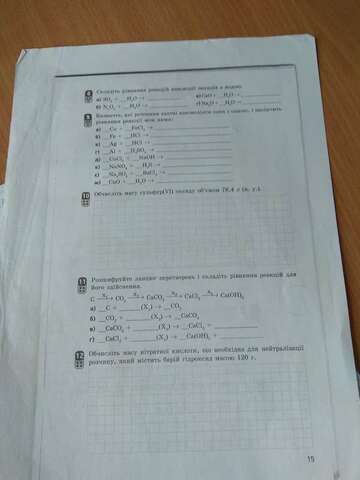 Складіть рівняння реакцій взаємодії оксидів з водою.
а) SO₃ + __H₂O → ____ в) CaO + __H₂O → ____
б) N₂O₅ + __H₂O → ____ г) Na₂O + __H₂O → ____
9 Визначте, які речовини здатні взаємодіяти одна з одною, і закінчіть
рівняння реакцій між ними:
а) __Cu + __FeCl₂ → ____
б) __Fe + __HCl → ____
в) __Ag + __HCl → ____
г) __Al + __H₂SO₄ → ____
д) __CuCl₂ + __NaOH → ____
е) __NaNO₃ + __H₂O → ____
є) __Na₂SO₄ + __BaCl₂ → ____
ж) __CuO + __H₂O → ____
10 Обчисліть масу сульфур(VI) оксиду об'ємом 78,4 л (н. у.).
11 Розшифруйте ланцюг перетворень і складіть рівняння реакцій для
його здійснення.
C → CO₂ → CaCO₃ → CaCl₂ → Ca(OH)₂
а) __C + ____(X₁) → __CO₂
б) __CO₂ + ____(X₂) → __CaCO₃
в) __CaCO₃ + ____(X₃) → __CaCl₂ + ____
г) __CaCl₂ + ____(X₄) → __Ca(OH)₂ + ____
12 Обчисліть масу нітратної кислоти, що необхідна для нейтралізації
розчину, який містить барій гідроксид масою 120 г.
15